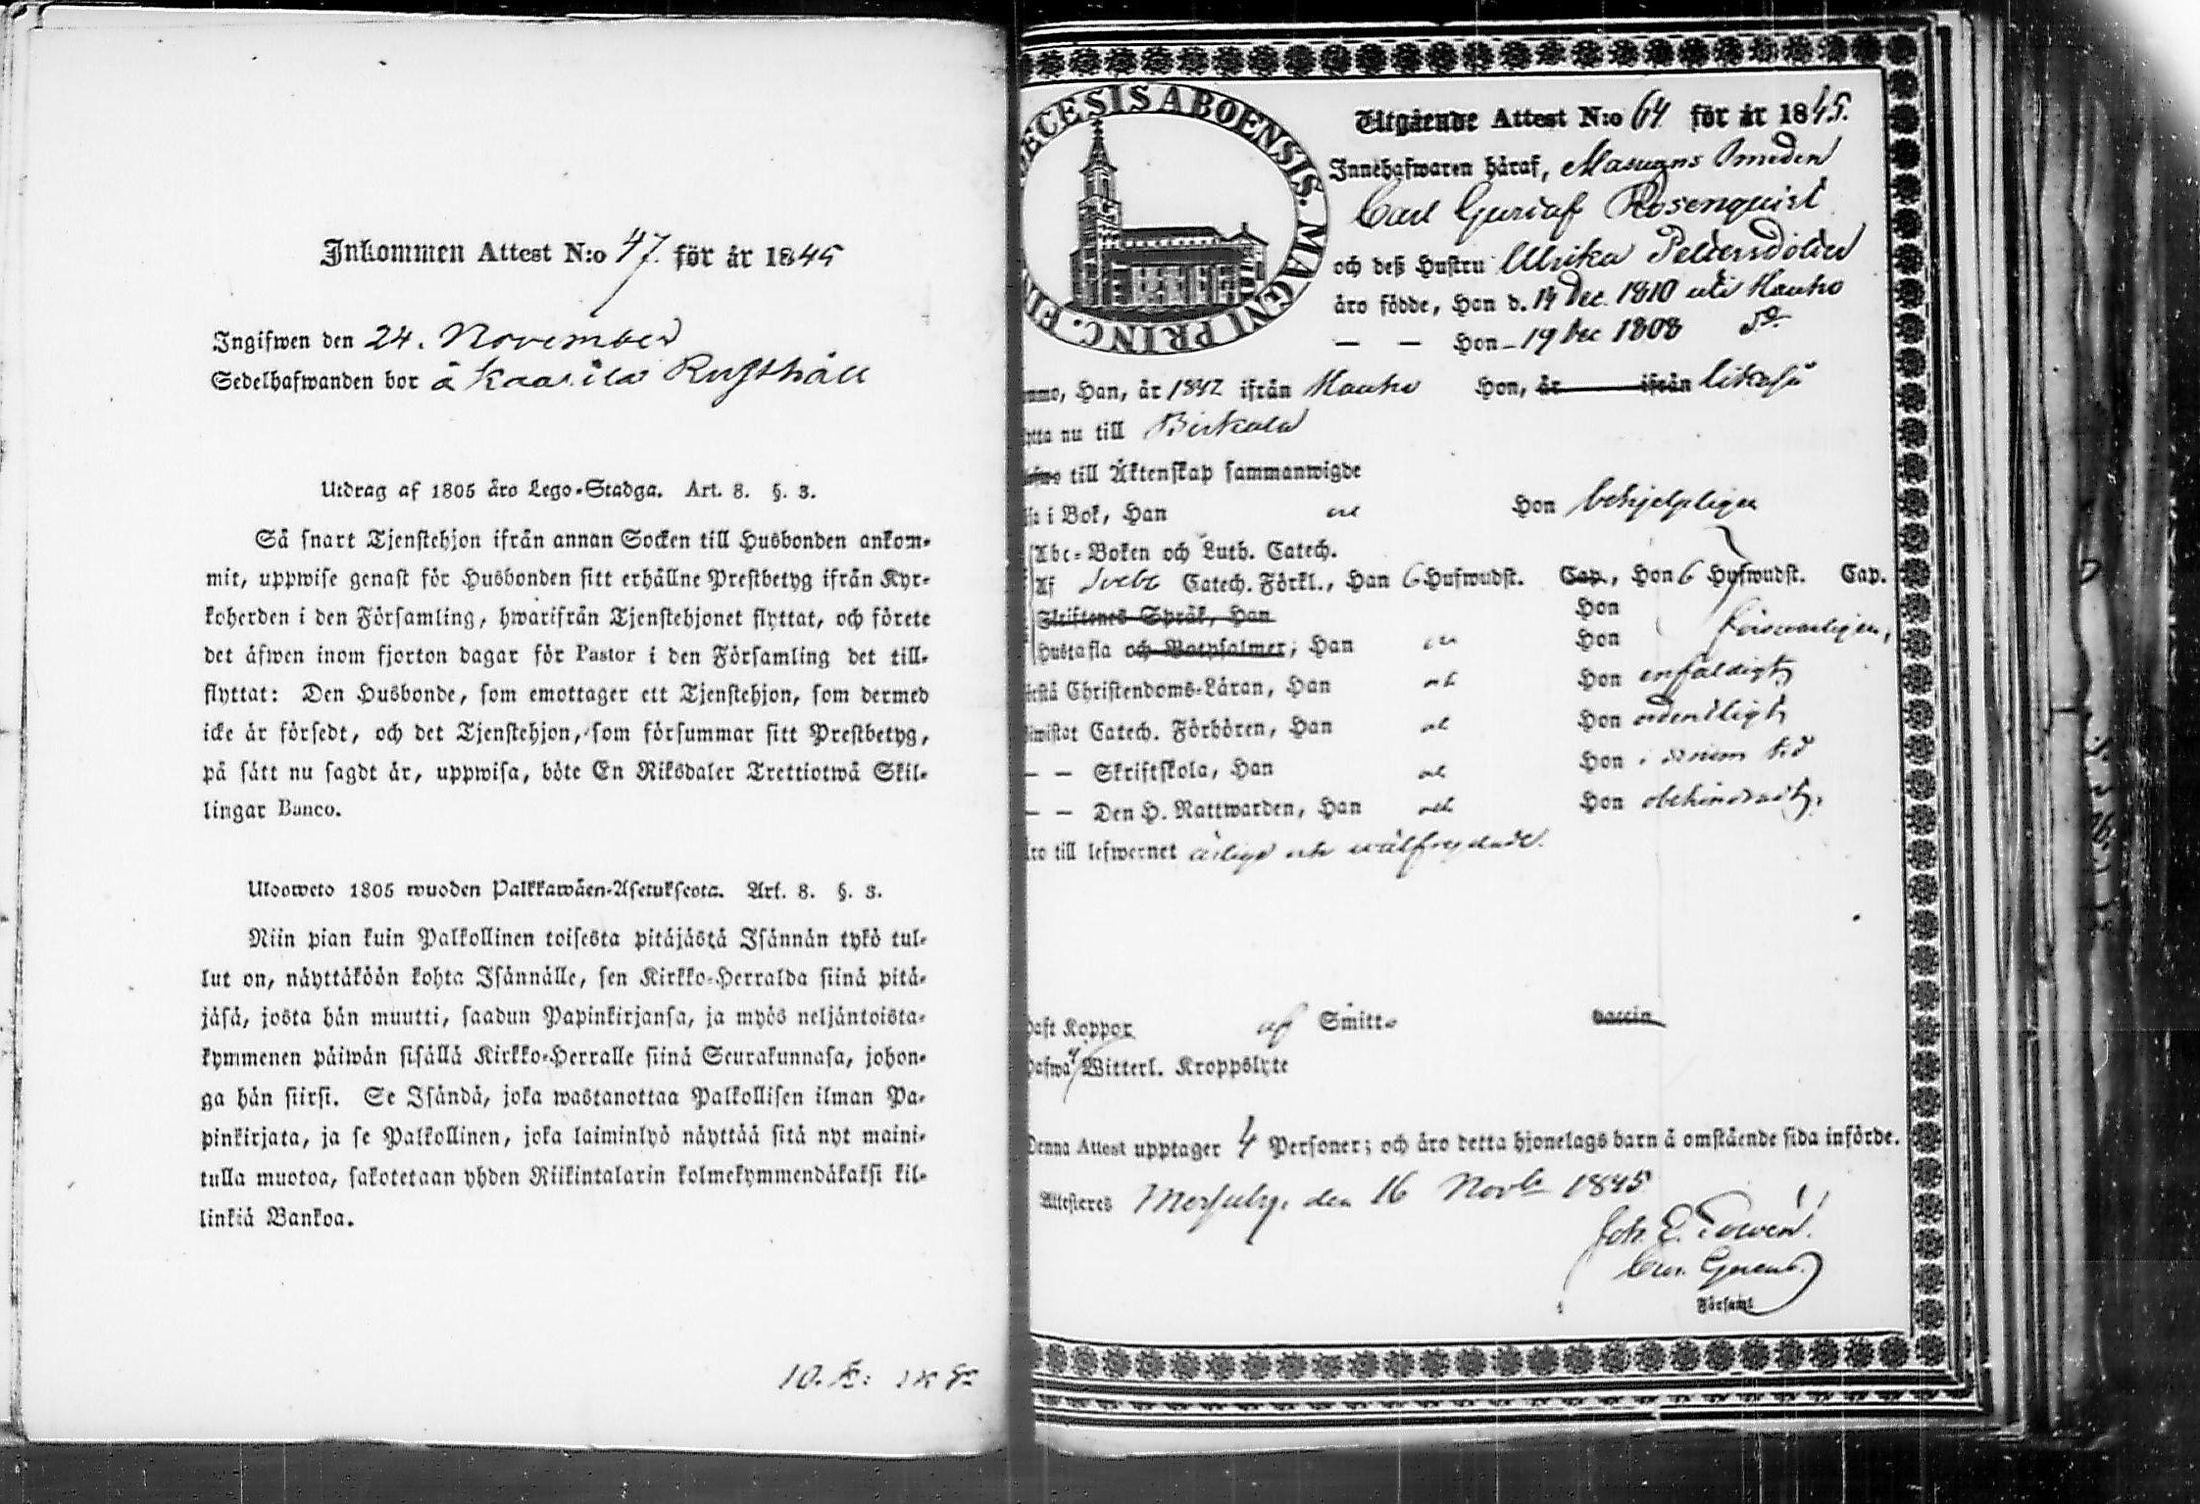 Inkommen Attest N:o 47. för år 1845
Ingifwen den 24. November
Sedelhafwanden bor å Kaarila Rusthåll
Utdrag af 1805 års Lego-Stadga. Art. 8. §. 3.
Så snart Tjenstehjon ifrån annan Socken till Husbonden ankom-
mit, uppwise genast för Husbonden sitt erhållne Prestbetyg ifrån Kyr-
koherden i den Församling, hwarifrån Tjenstehjonet flyttat, och förete
det äfwen inom fjorton dagar för Pastor i den Församling det till-
flyttat: Den Husbonde, som emottager ett Tjenstehjon, som dermed
icke är försedt, och det Tjenstehjon, som försummar sitt Prestbetyg,
på sätt nu sagdt är, uppwisa, böte En Riksdaler Trettiotwå Skil-
lingar Banco.
Ulosweto 1805 wuoden Palkkawäen-Asetuksesta. Art. 8. §. 3.
Niin pian kuin Palkollinen toisesta pitäjästä Isännän tykö tul-
lut on, näyttäköön kohta Isännälle, sen Kirkko-Herralda siinä pitä-
jäsä, josta hän muutti, saadun Papinkirjansa, ja myös neljäntoista-
kymmenen päiwän sisällä Kirkko-Herralle siinä Seurakunnasa, johon-
ga hän siirsi. Se Isändä, joka wastanottaa Palkollisen ilman Pa-
pinkirjata, ja se Palkollinen, joka laiminlyö näyttää sitä nyt maini-
tulla muotoa, sakotetaan yhden Riikintalarin kolmekymmendäkaksi kil-
linkiä Bankoa.
ECESIS ABOENSIS. MAGNI PRINC. FI
Utgående Attest N:o 64 för år 1845.
Innehafwaren häraf, Masugns Smeden
Carl Gustaf Rosenquist
och deß Hustru Ulrika Pettersdotter
äro födde, Han d. 14 Dec. 1810 uti Hauho
— — Hon - 19 Dec 1808 do
mmo, Han, år 1842 ifrån Hauho Hon, år ifrån likaså
ytta nu till Birkala
till Äktenskap sammanwigde
i Bok, Han och Hon behjelpligen
Abc-Boken och Luth. Catech.
Af Svebe Catech. Förkl., Han 6 Hufwudst. Cap., Hon 6 Hufwudst. Cap.
Skriftenes Språk, Han Hon
Hustafla och Botpsalmer; Han och Hon försvarligen,
Christendoms-Läran, Han och Hon enfaldigt
wistat Catech. Förhören, Han och Hon ordentligt
— — Skriftskola, Han och Hon i sinom tid
— — Den H. Nattwarden, Han och Hon obehindradt,
äro till lefwernet ärlige och wälfrejdade.
haft Koppor af Smitto vaccin
hafwa Witterl. Kroppslyte
Denna Attest upptager 4 Personer; och äro detta hjonelags barn å omstående sida införde.
Attesteres den 16 Novb 1845
Joh. E.
Församl